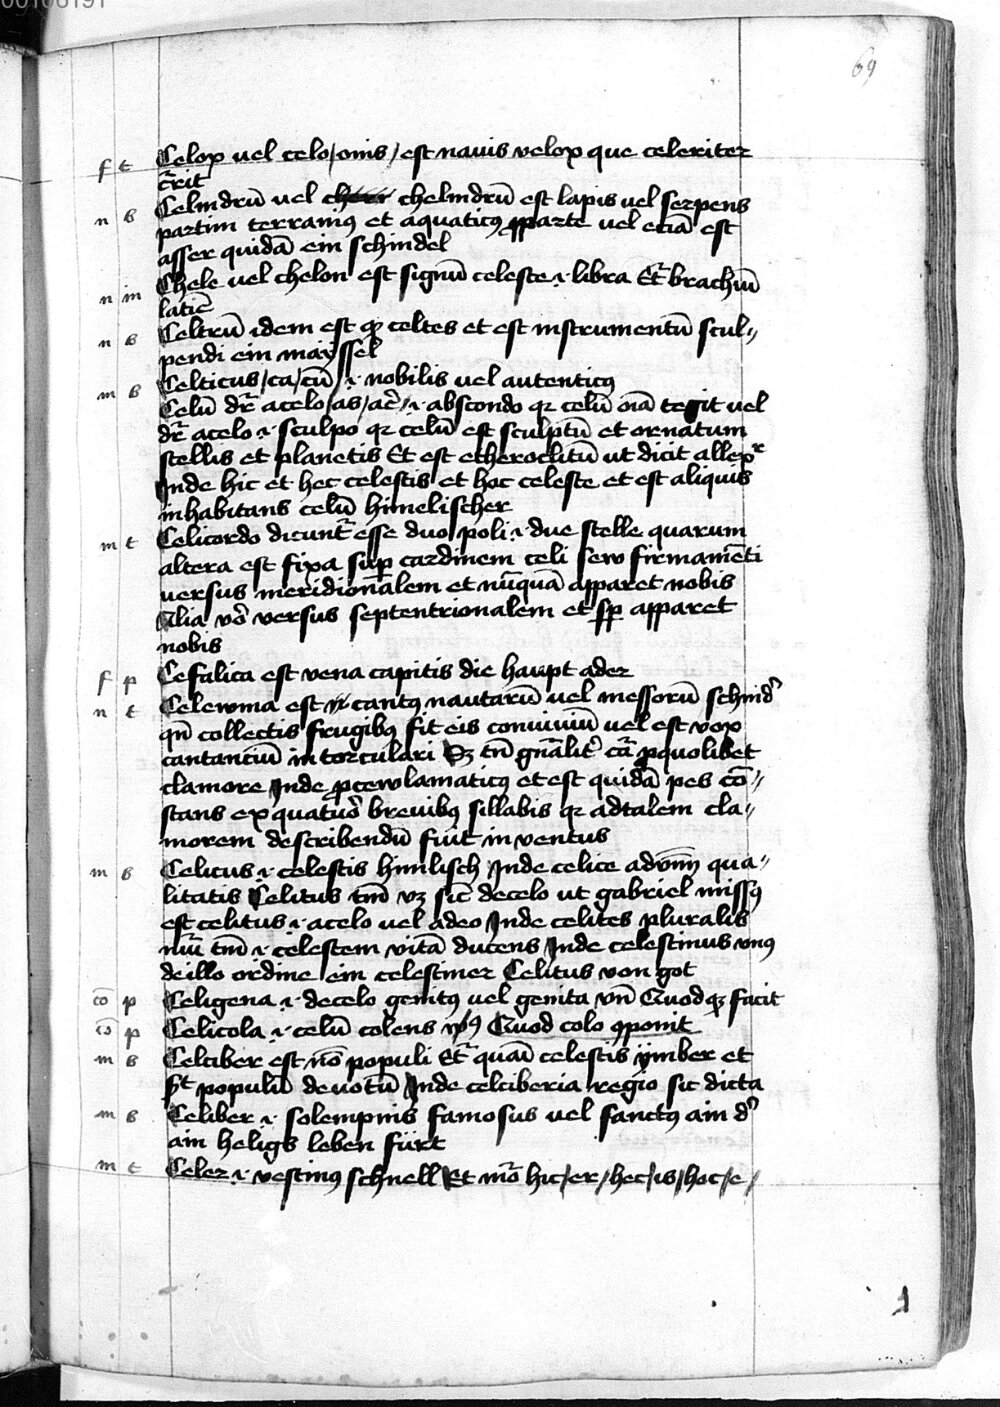 00106191
69
f t Celox vel celo/onis/est nauis velox que celeriter
c̄rit
n s Celindrū vel chelindrū est lapis vel serpens
partim terranius et aquaticus ꝓparte vel eciā est
asser quidā ein schindel
n m Chele vel chelon est signū celeste .i. libra Et̄ brachiū
latiē
n s Celtrū idem est qꝫ celtes et est instrumentū scul-
pendi ein mayssel
m s Celticus/ca/cū/ .i. nobilis vel autenticus
Celū dr̄ acelo/as/ac̄/ .i. abscondo qꝛ celū oīa tegit vel
dr̄ acelo .i. sculpo qꝛ celū est sculptū et ornatum
stellis et planetis Et est etheroclitū ut dicit allexr
Inde hic et hec celestis et hoc celeste et est aliquis
inhabitans celū himelischer
m t Celicordo dicunt̄ esse duo poli .i. due stelle quarum
altera est fixa suꝑ cardinem celi sew firmamēti
versus meridionālem et nūquā apparet nobis
Alia vo᷑ versus septentrionalem et sꝑ apparet
nobis
f p Cefalica est vena capitis die haupt ader
n t Celewma est cantus nautarū vel messorū schnid᷑
qn̄ collectis frugibus fit eis conuiuiū vel est vox
cantanciū in torculari Sꝫ tn̄ gn̄alit᷑ c̄a ꝓquolibet
clamore Inde ꝓcewlamaticus et est quidā pes cō-
stans ex quatuo᷑ breuibus sillabis qꝛ adtalem cla-
morem describendū fuit inventus
m s Celicus .i. celestis himlisch Inde celice adū̄m qua-
litatis Celitus tm̄ vꝫ sic̄ decelo ut gabriel missus
est celitus .i. acelo vel adeo Inde celites pluralis
nūi tm̄ .i. celestem vitā ducens Inde celestinus vnus
deillo ordine ein celestiner Celitus von got
cō p Celigena .i. decelo genitus vel genita vn̄ Quodqꝫ facit
cō p Celicola .i. celū colens Quod colo ꝯponit
m s Celtiber est nō populi Et̄ quāi celestis ymber et
populū deuotū Inde celciberia regio sic dicta
m s Celiber .i. solempnis famosus vel sanctus ain d᷑
ain heligs leben fürt
m t Celer .i. vestinus schnell Et mō hic/er/hec/is/hoc/e/